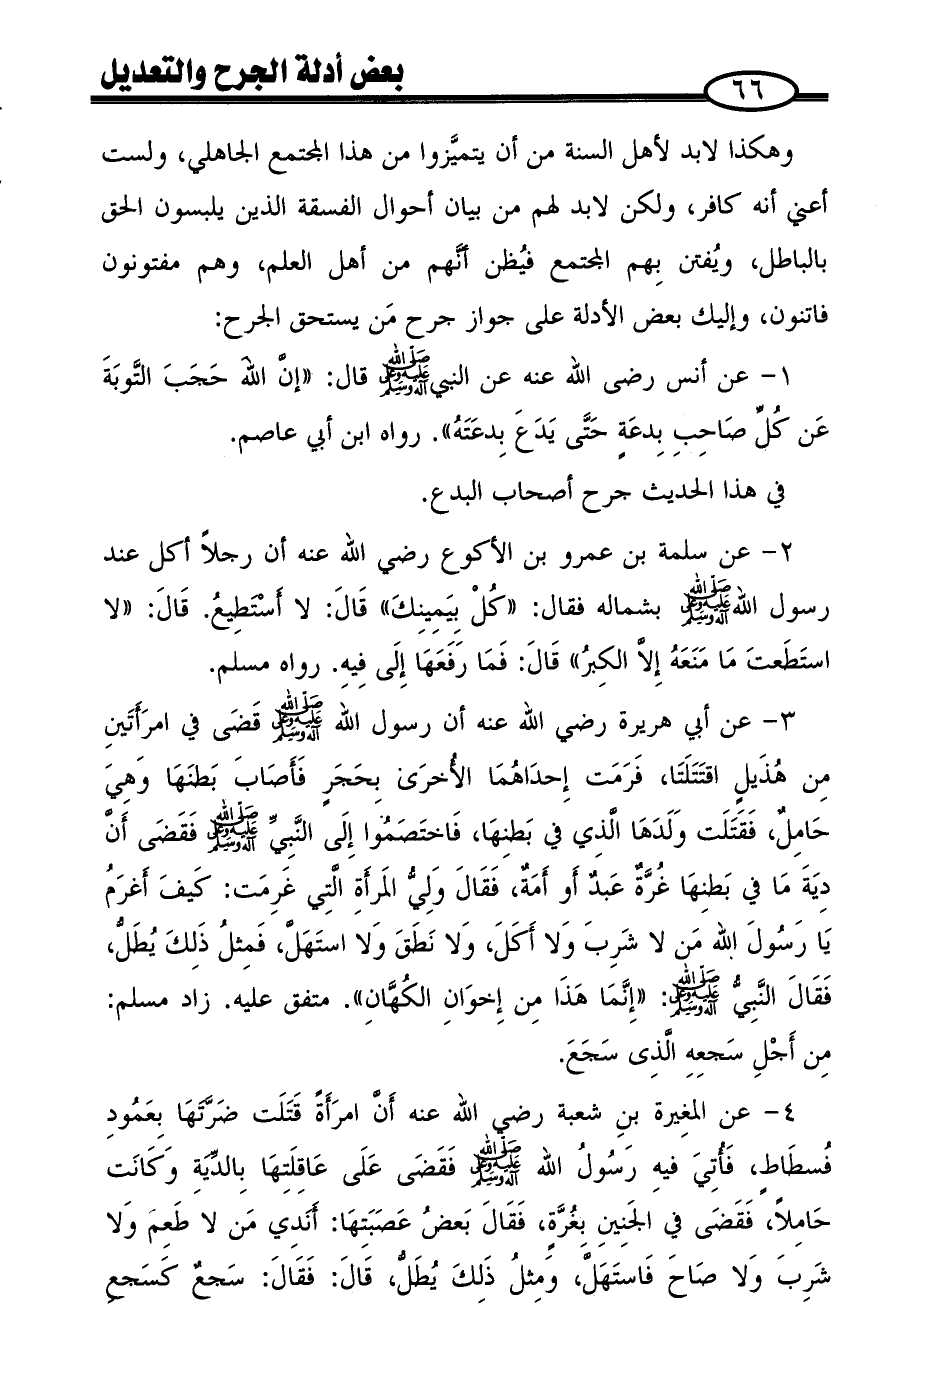 بعض أدلة الجرح والتعديل
٦٦
وهكذا لابد لأهل السنة من أن يتميَّزوا من هذا المجتمع الجاهلي، ولست
أعني أنه كافر، ولكن لابد لهم من بيان أحوال الفسقة الذين يلبسون الحق
بالباطل، ويُفتن بِهم المجتمع فيُظن أنَّهم من أهل العلم، وهم مفتونون
فاتنون، وإليك بعض الأدلة على جواز جرح مَن يستحق الجرح:
١- عن أنس رضى الله عنه عن النبي ﷺ قال: «إنَّ اللهَ حَجَبَ التَّوبَةَ
عَن كُلِّ صَاحِبِ بِدعَةٍ حَتَّى يَدَعَ بِدعَتَهُ». رواه ابن أبي عاصم.
في هذا الحديث جرح أصحاب البدع.
٢- عن سلمة بن عمرو بن الأكوع رضي الله عنه أن رجلاً أكل عند
رسول الله ﷺ بشماله فقال: «كُلْ بِيَمِينِكَ» قَالَ: لا أَسْتَطِيعُ. قَالَ: «لا
استَطَعتَ مَا مَنَعَهُ إلاَّ الكِبرُ» قَالَ: فَمَا رَفَعَهَا إلَى فِيهِ. رواه مسلم.
٣- عن أبي هريرة رضي الله عنه أن رسول الله ﷺ قَضَى فِي امرَأَتَينِ
مِن هُذَيلٍ اقتَتَلَتَا، فَرَمَت إحدَاهُمَا الأُخرَىٰ بِحَجَرٍ فَأَصَابَ بَطنَهَا وَهِيَ
حَامِلٌ، فَقَتَلَت وَلَدَهَا الَّذِي فِي بَطنِهَا، فَاختَصَمُوا إلَى النَّبِيِّ ﷺ فَقَضَى أَنَّ
دِيَةَ مَا فِي بَطنِهَا غُرَّةٌ عَبدٌ أَو أَمَةٌ، فَقَالَ وَلِيُّ المَرأَةِ الَّتِي غَرِمَت: كَيفَ أَغرَمُ
يَا رَسُولَ اللهِ مَن لا شَرِبَ وَلا أَكَلَ، وَلا نَطَقَ وَلا استَهَلَّ، فَمِثلُ ذَلِكَ يُطَلُّ،
فَقَالَ النَّبِيُّ ﷺ: «إنَّمَا هَذَا مِن إخوَانِ الكُهَّانِ». متفق عليه. زاد مسلم:
مِن أَجْلِ سَجعِهِ الَّذِى سَجَعَ.
٤- عن المغيرة بنِ شعبة رضي الله عنه أَنَّ امرَأَةً قَتَلَت ضَرَّتَهَا بِعَمُودِ
فُسطَاطٍ، فَأُتِيَ فِيهِ رَسُولُ الله ﷺ فَقَضَى عَلَى عَاقِلَتِهَا بِالدِّيَةِ وَكَانَت
حَامِلاً، فَقَضَى فِي الجَنِينِ بِغُرَّةٍ، فَقَالَ بَعضُ عَصَبَتِهَا: أَنَدِي مَن لا طَعِمَ وَلا
شَرِبَ وَلا صَاحَ فَاستَهَلَّ، وَمِثلُ ذَلِكَ يُطَلُّ، قَالَ: فَقَالَ: سَجعٌ كَسَجعِ